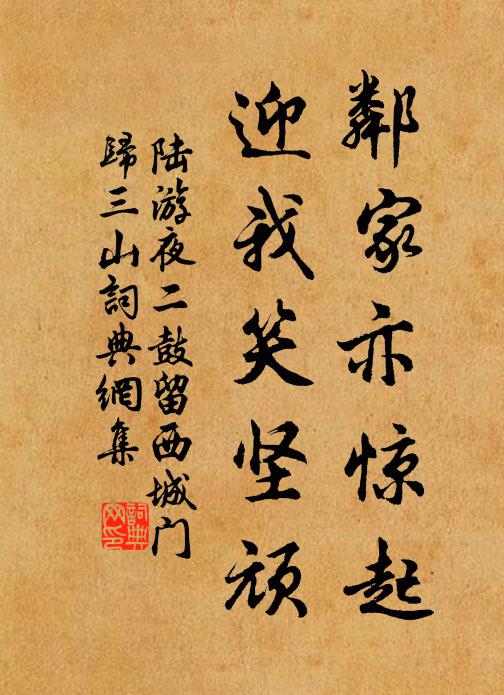 鄰家亦惊起
迎我笑坚顽
陆游夜二鼓留西城门
歸三山詞典網集
詞典
网印